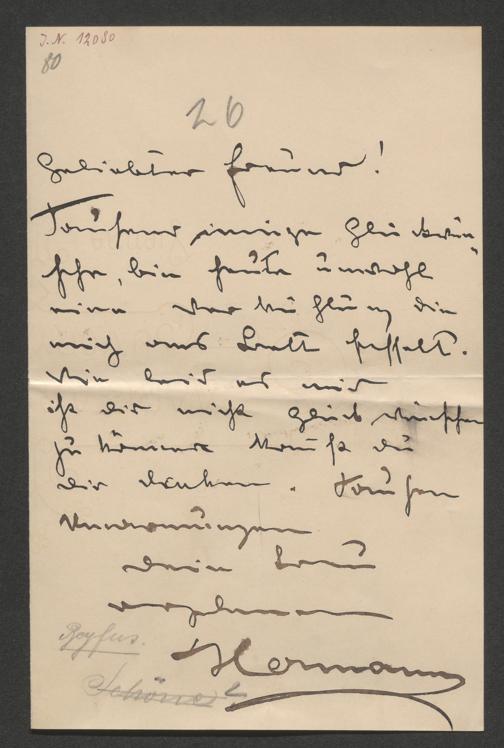 J.N. 12080
80
26
Geliebter Freund!
Tausend innige Glückwün-
sche, bin heute unwohl
eine Verkühlung die
mich ans Bett fesselt.
Wie leid es mir
ist dir nicht Glück wünschen
zu können kannst du
dir denken. Tausend
dein treu
ergebener
Hermann